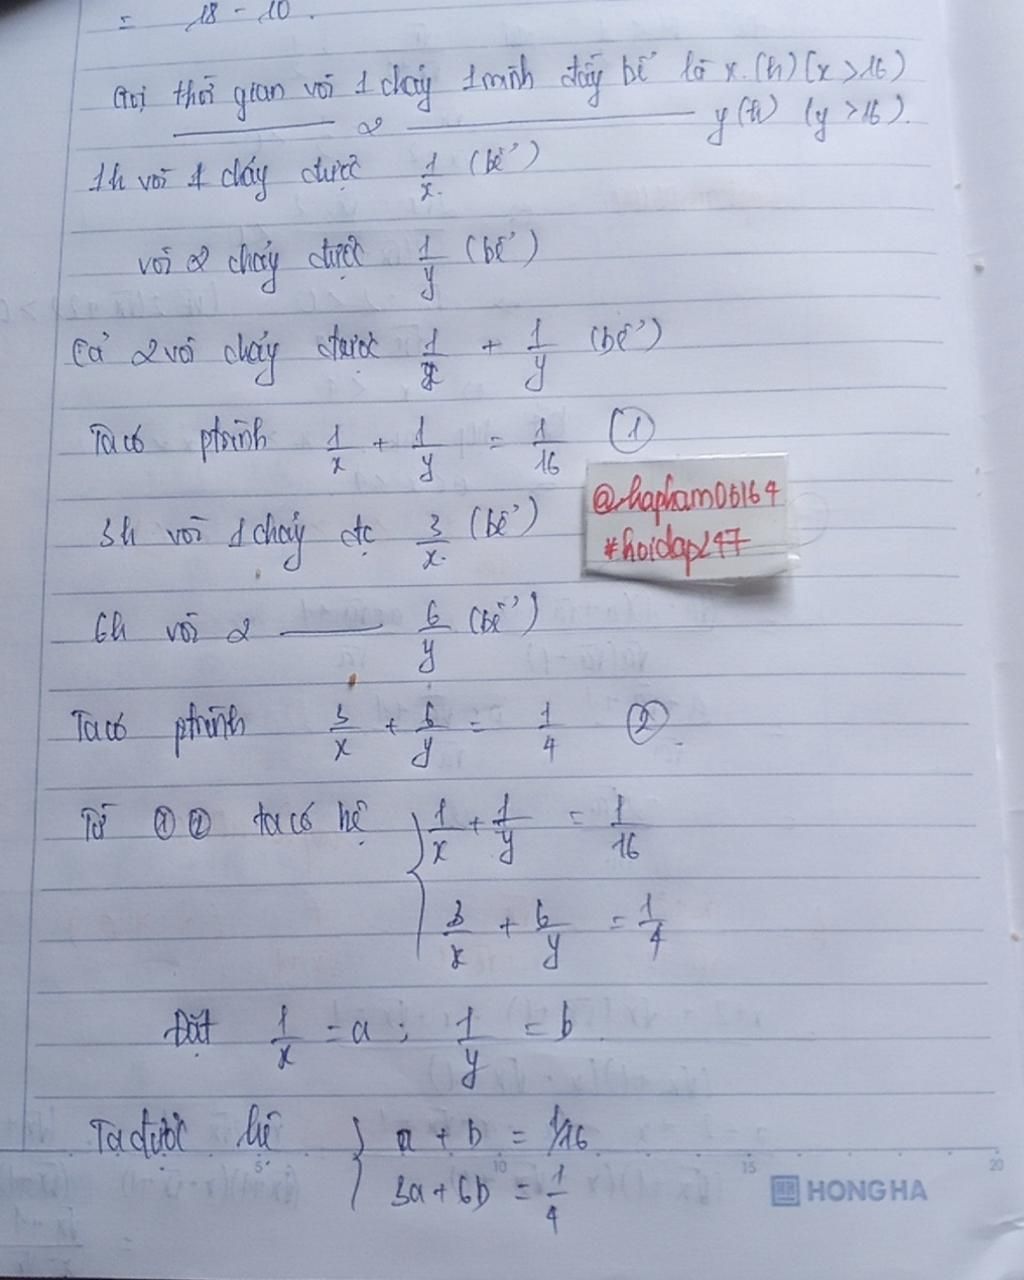 = 18 - 10.
Gọi thời gian vòi 1 chảy 1 mình đầy bể là x. (h) (x > 16)
2 y (h) (y > 16).
1h vòi 1 chảy được 1/x. (bể)
vòi 2 chảy được 1/y (bể)
Cả 2 vòi chảy được 1/x + 1/y (bể)
Ta có ptrình 1/x + 1/y = 1/16 (1)
@hapham06164
#hoidap247
3h vòi 1 chảy đc 3/x. (bể)
6h vòi 2 6/y (bể)
Ta có ptrình 3/x + 6/y = 1/4 (2)
Từ (1) (2) ta có hệ { 1/x + 1/y = 1/16
3/x + 6/y = 1/4
Đặt 1/x = a ; 1/y = b
Ta được hệ { a + b = 1/16
3a + 6b = 1/4
5 10 15 20
HONG HA